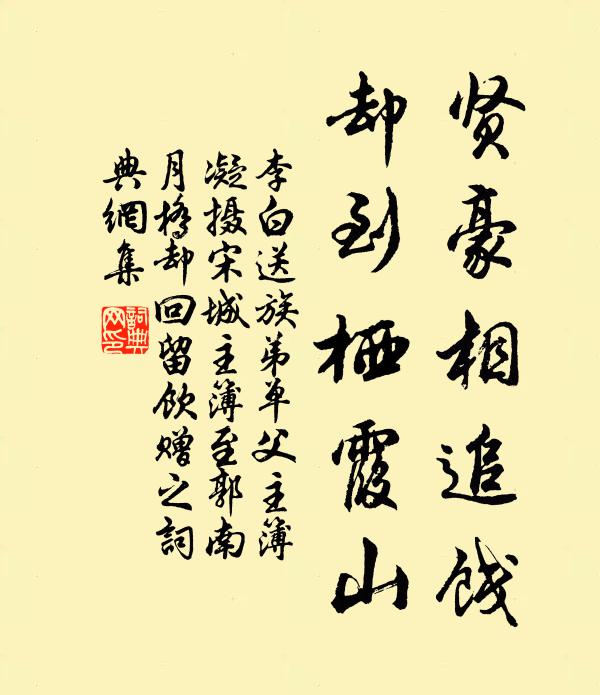 贤豪相追饯
却到栖霞山
李白送族弟单父主簿
凝摄宋城主簿至郭南
月桥却回留饮赠之詞
典網集
詞典
网印